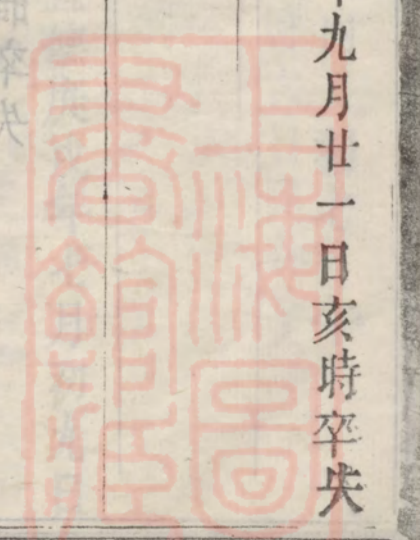 九月廿一日亥時卒失
上海圖
書館